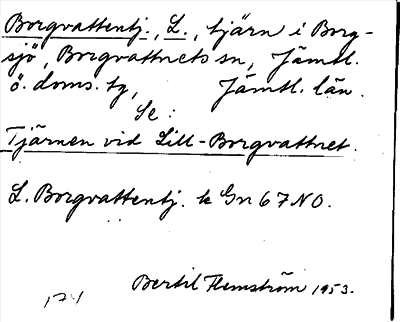 Borgvattentj., L., tjärn i Borg-
sjö, Borgvattnets sn, Jämtl.
ö. doms. tg, Jämtl. län.
Se:
Tjärnen vid Lill-Borgvattnet.
L. Borgvattentj. k Gn 67 NO.
Bertil Flemström 1953.
124